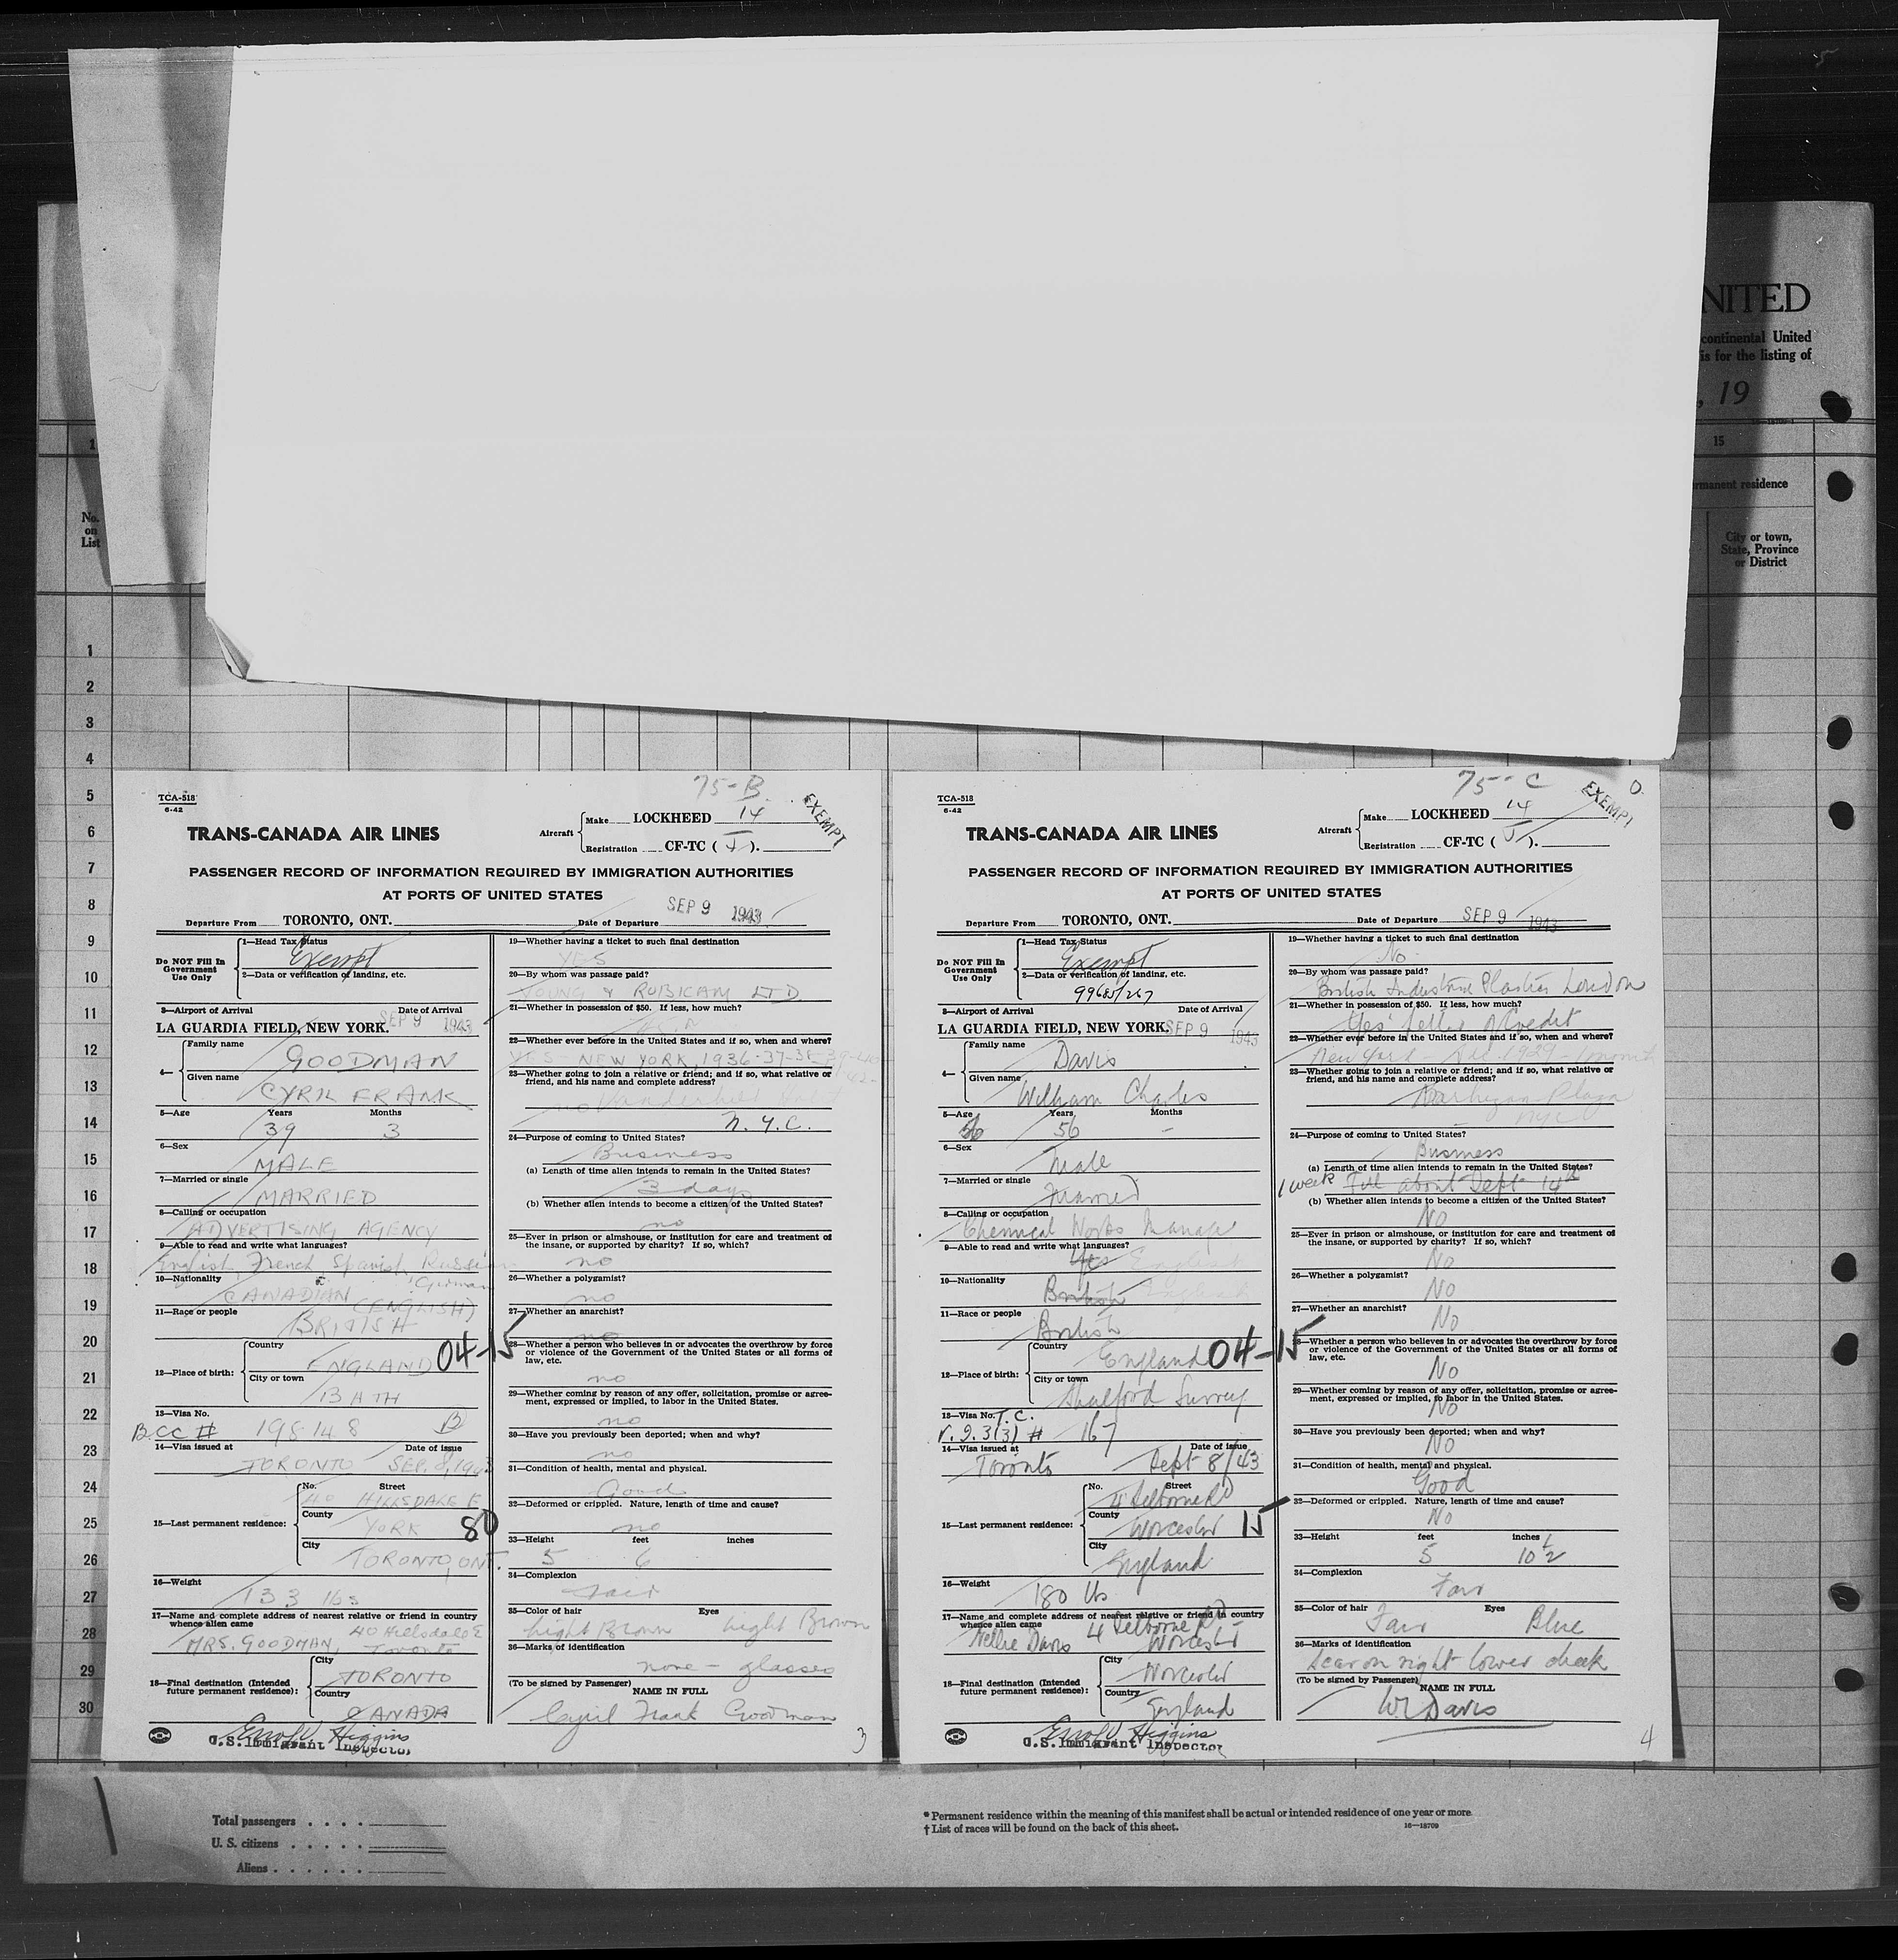 NITED
continental United
is for the listing of
, 19
15
rmanent residence
No.
on
List
City or town,
State, Province
or District
1
2
3
4
5
6
7
8
9
10
11
12
13
14
15
16
17
18
19
20
21
22
23
24
25
26
27
28
29
30
75-B
TCA-518
6-42
EXEMPT
TRANS-CANADA AIR LINES
Aircraft
Make LOCKHEED 14
Registration CF-TC ( ).
PASSENGER RECORD OF INFORMATION REQUIRED BY IMMIGRATION AUTHORITIES
AT PORTS OF UNITED STATES
Departure From TORONTO, ONT. Date of Departure SEP 9 1943
Do NOT Fill In Government Use Only
1—Head Tax Status
Exempt
2—Data or verification of landing, etc.
3—Airport of Arrival Date of Arrival
LA GUARDIA FIELD, NEW YORK. SEP 9 1943
4— Family name GOODMAN
Given name CYRIL FRANK
5—Age Years 39 Months 3
6—Sex
MALE
7—Married or single
MARRIED
8—Calling or occupation
ADVERTISING AGENCY
9—Able to read and write what languages?
English French Spanish Russian
German
10—Nationality
CANADIAN (ENGLISH)
11—Race or people
BRITISH
12—Place of birth:
Country ENGLAND 04-15
City or town BATH
13—Visa No.
B.CC # 198148 B
14—Visa issued at Date of issue
TORONTO SEP. 8, 1943
15—Last permanent residence:
No. Street
40 HILLSDALE E
County YORK 80
City TORONTO, ONT.
16—Weight
133 lbs
17—Name and complete address of nearest relative or friend in country
whence alien came 40 Hillsdale E
MRS. GOODMAN, Toronto
18—Final destination (Intended
future permanent residence):
City TORONTO
Country CANADA
Higgins
U.S. Immigrant Inspector
19—Whether having a ticket to such final destination
YES
20—By whom was passage paid?
YOUNG & RUBICAM LTD
21—Whether in possession of $50. If less, how much?
22—Whether ever before in the United States and if so, when and where?
YES - NEW YORK, 1936-37-38-39-40
42-
23—Whether going to join a relative or friend; and if so, what relative or
friend, and his name and complete address?
no Vanderbilt Hotel
N.Y.C.
24—Purpose of coming to United States?
Business
(a) Length of time alien intends to remain in the United States?
3 days
(b) Whether alien intends to become a citizen of the United States?
no
25—Ever in prison or almshouse, or institution for care and treatment of
the insane, or supported by charity? If so, which?
no
26—Whether a polygamist?
no
27—Whether an anarchist?
no
28—Whether a person who believes in or advocates the overthrow by force
or violence of the Government of the United States or all forms of
law, etc.
no
29—Whether coming by reason of any offer, solicitation, promise or agree-
ment, expressed or implied, to labor in the United States.
no
30—Have you previously been deported; when and why?
no
31—Condition of health, mental and physical.
Good
32—Deformed or crippled. Nature, length of time and cause?
no
33—Height feet inches
5 6
34—Complexion
Fair
35—Color of hair Eyes
Light Brown Light Brown
36—Marks of identification
none - glasses
(To be signed by Passenger)
NAME IN FULL
Cyril Frank Goodman
3
75-C
0
TCA-518
6-42
EXEMPT
TRANS-CANADA AIR LINES
Aircraft
Make LOCKHEED 14
Registration CF-TC ( ).
PASSENGER RECORD OF INFORMATION REQUIRED BY IMMIGRATION AUTHORITIES
AT PORTS OF UNITED STATES
Departure From TORONTO, ONT. Date of Departure SEP 9 1943
Do NOT Fill In Government Use Only
1—Head Tax Status
Exempt
2—Data or verification of landing, etc.
99685/267
3—Airport of Arrival Date of Arrival
LA GUARDIA FIELD, NEW YORK. SEP 9 1943
4— Family name Davis
Given name William Charles
5—Age Years 56 Months -
6—Sex
Male
7—Married or single
Married
8—Calling or occupation
Chemical Works Manager
9—Able to read and write what languages?
Yes English
10—Nationality
British English
11—Race or people
British
12—Place of birth:
Country England 04-15
City or town Shalford Surrey
13—Visa No. T.C.
V. 9. 3(3) # 167
14—Visa issued at Date of issue
Toronto Sept 8/43
15—Last permanent residence:
No. Street
4 Selborne Rd
County Worcester 15
City England
16—Weight
180 lbs
17—Name and complete address of nearest relative or friend in country
whence alien came 4 Selborne Rd
Nellie Davis Worcester
18—Final destination (Intended
future permanent residence):
City Worcester
Country England
Higgins
U.S. Immigrant Inspector
19—Whether having a ticket to such final destination
No.
20—By whom was passage paid?
British Industrial Plastics London
21—Whether in possession of $50. If less, how much?
Yes letter of Credit
22—Whether ever before in the United States and if so, when and where?
New York - 1929 -
23—Whether going to join a relative or friend; and if so, what relative or
friend, and his name and complete address?
Barbizon-Plaza
NYC
24—Purpose of coming to United States?
Business
(a) Length of time alien intends to remain in the United States?
1 week Till about Sept 14th
(b) Whether alien intends to become a citizen of the United States?
No
25—Ever in prison or almshouse, or institution for care and treatment of
the insane, or supported by charity? If so, which?
No
26—Whether a polygamist?
No
27—Whether an anarchist?
No
28—Whether a person who believes in or advocates the overthrow by force
or violence of the Government of the United States or all forms of
law, etc.
No
29—Whether coming by reason of any offer, solicitation, promise or agree-
ment, expressed or implied, to labor in the United States.
No
30—Have you previously been deported; when and why?
No
31—Condition of health, mental and physical.
Good
32—Deformed or crippled. Nature, length of time and cause?
No
33—Height feet inches
5 10½
34—Complexion
Fair
35—Color of hair Eyes
Fair Blue
36—Marks of identification
Scar on right lower cheek
(To be signed by Passenger)
NAME IN FULL
WC Davis
4
Total passengers
U. S. citizens
Aliens
* Permanent residence within the meaning of this manifest shall be actual or intended residence of one year or more.
† List of races will be found on the back of this sheet.
16—18709